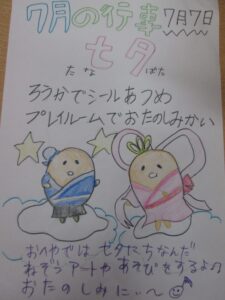 7月の行事 7月7日
七夕
たなばた
ろうかでシールあつめ
プレイルームでおたのしみかい
おへやでは七夕にちなんだ
ねぞうアートやあそびをするよ♪
おたのしみに..〜